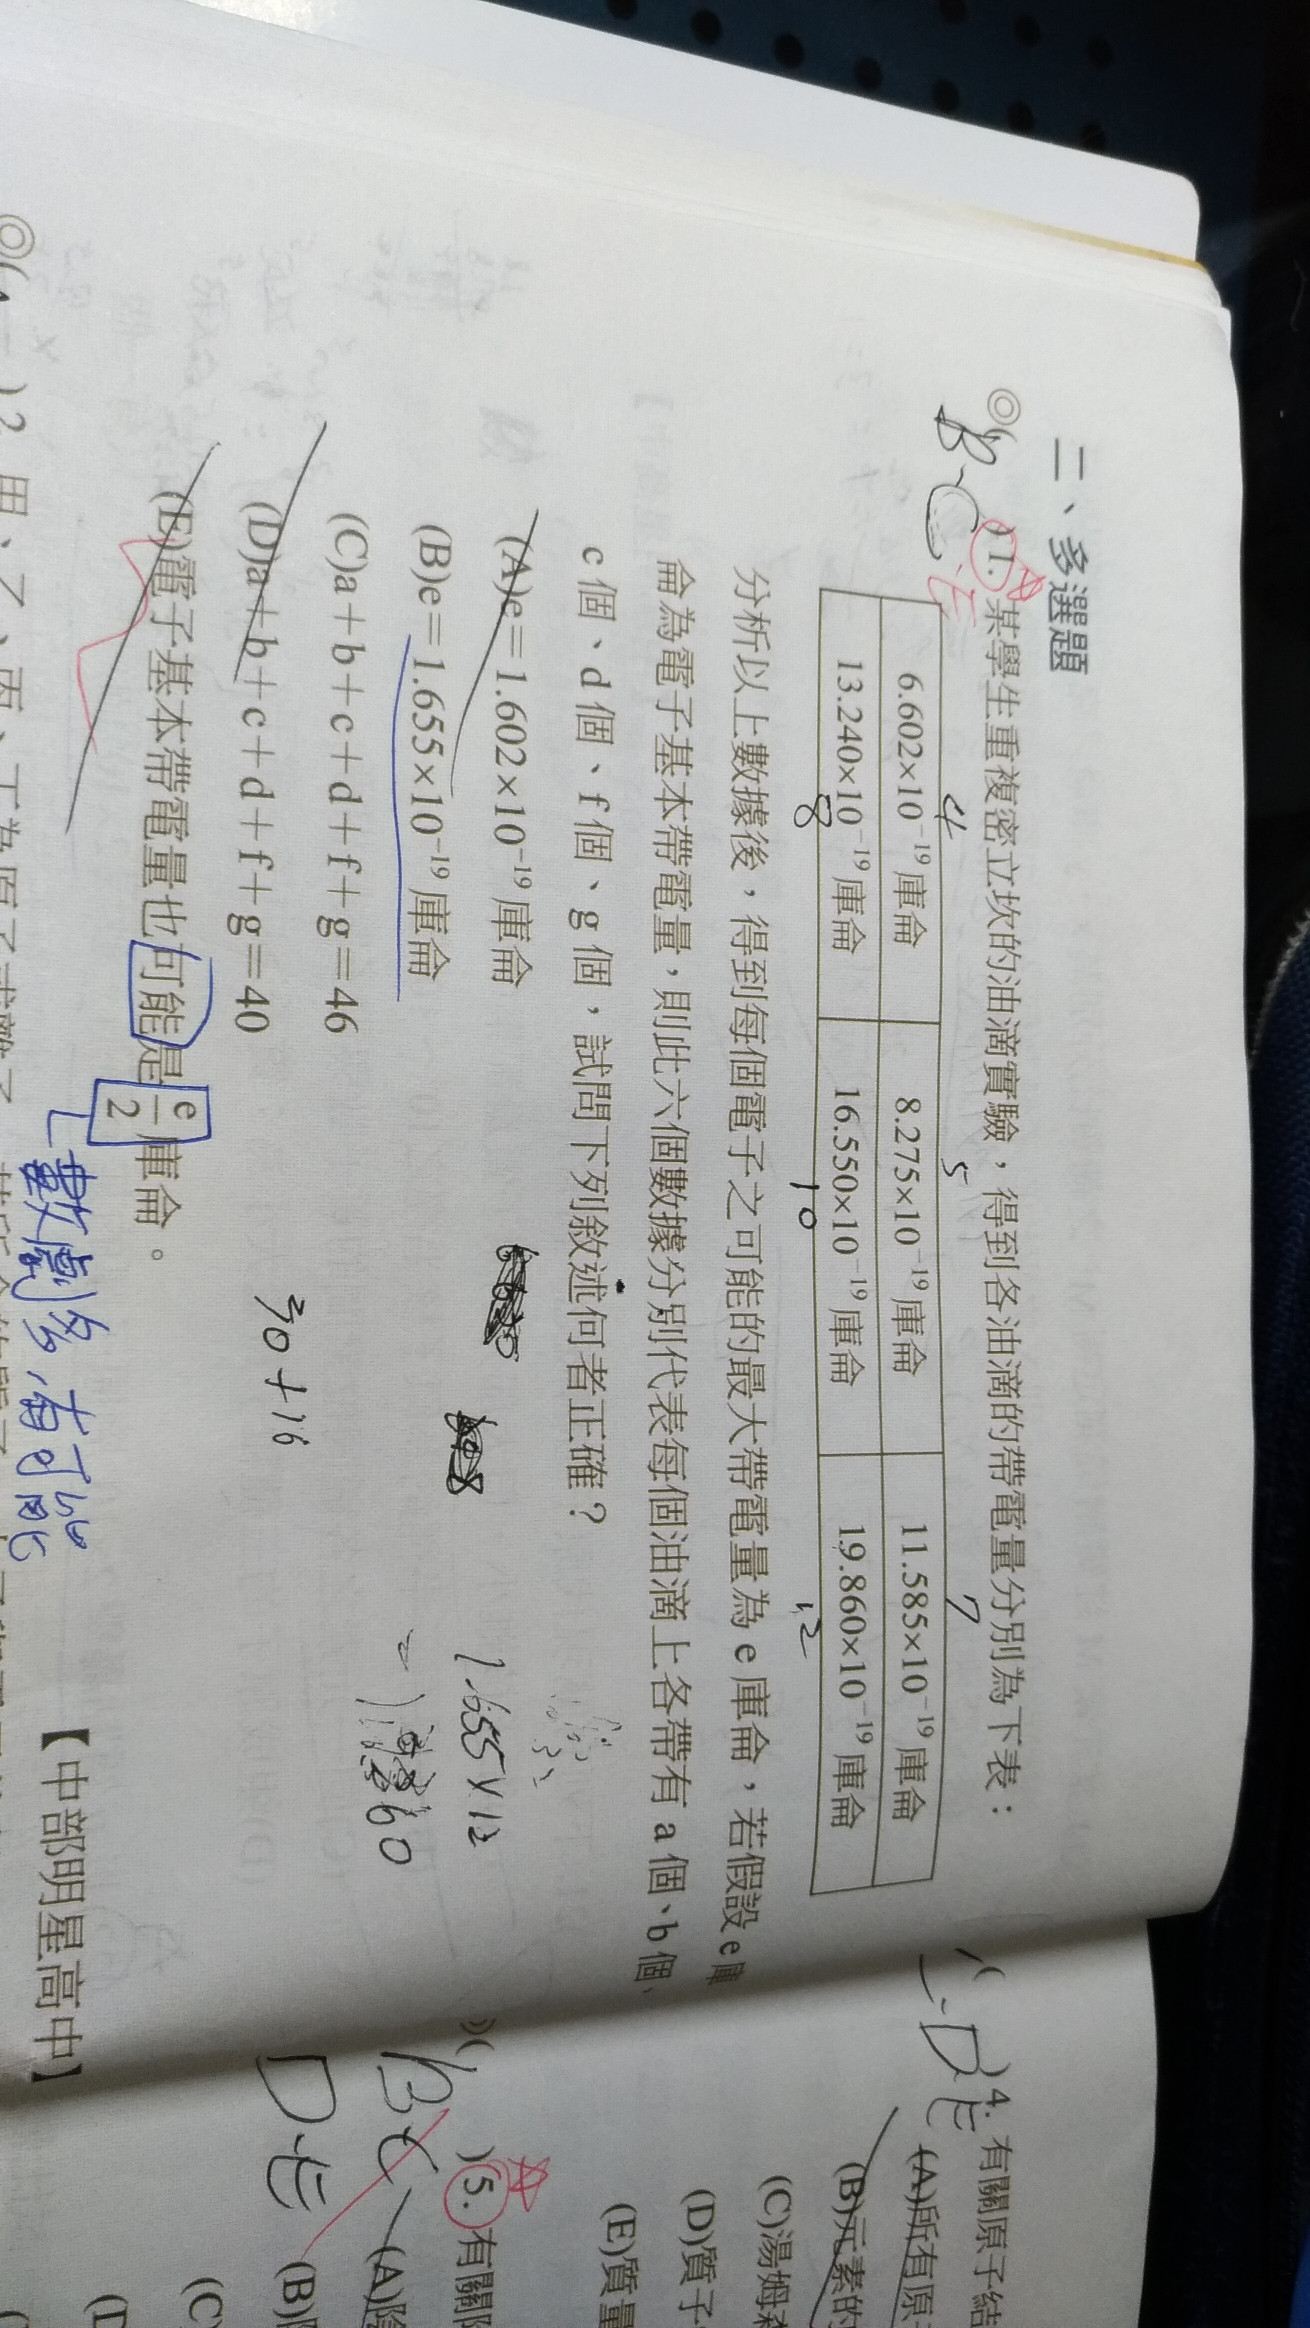 二、多選題
◎( B.C E )1. 某學生重複密立坎的油滴實驗，得到各油滴的帶電量分別為下表：
4 5 7
6.602×10⁻¹⁹庫侖 8.275×10⁻¹⁹庫侖 11.585×10⁻¹⁹庫侖
13.240×10⁻¹⁹庫侖 16.550×10⁻¹⁹庫侖 19.860×10⁻¹⁹庫侖
8 10 12
分析以上數據後，得到每個電子之可能的最大帶電量為 e 庫侖，若假設 e 庫
侖為電子基本帶電量，則此六個數據分別代表每個油滴上各帶有 a 個、b 個、
c 個、d 個、f 個、g 個，試問下列敘述何者正確？
(A)e＝1.602×10⁻¹⁹庫侖
(B)e＝1.655×10⁻¹⁹庫侖
1.655×12
(C)a＋b＋c＋d＋f＋g＝46
(D)a＋b＋c＋d＋f＋g＝40
30+16
(E)電子基本帶電量也可能是 e/2 庫侖。
數劇多有可能
【中部明星高中】
)4. 有關原子結
D E
(A)所有原
(B)元素的
(C)湯姆
(D)質子
(E)質量
)5. 有關
B C
D E
(A)陰
(B)
(C)
◎( )2. 甲、乙、丙、丁為原子或離子